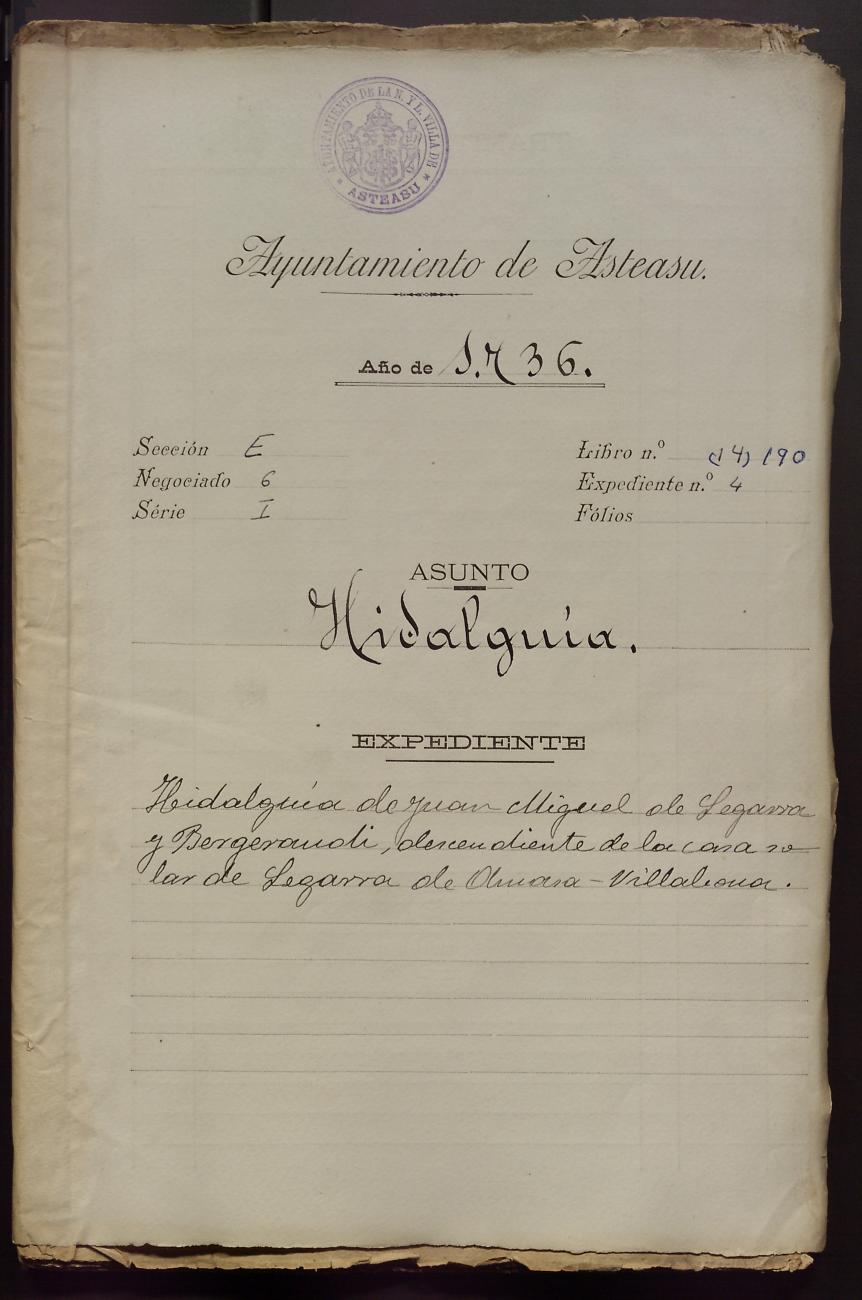 AYUNTAMIENTO DE LA N. Y L. VILLA DE
* ASTEASU *
Ayuntamiento de Asteasu.
Año de 1.736.
Sección E
Negociado 6
Série I
Libro n.º (14) 190
Expediente n.º 4
Fólios
ASUNTO
Hidalguía.
EXPEDIENTE
Hidalguía de Juan Miguel de Legarra
y Bergeraudi, descendiente de la casa so-
lar de Legarra de Amasa-Villabona.